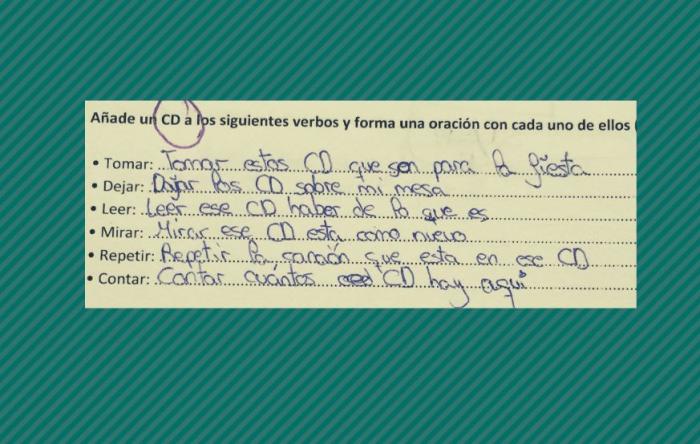 Añade un CD a los siguientes verbos y forma una oración con cada uno de ellos (
• Tomar: Tomar estos CD que son para la fiesta
• Dejar: Dejar los CD sobre mi mesa
• Leer: Leer ese CD haber de lo que es
• Mirar: Mirar ese CD esta como nuevo
• Repetir: Repetir la canción que esta en ese CD
• Contar: Contar cuántos CD hay aquí